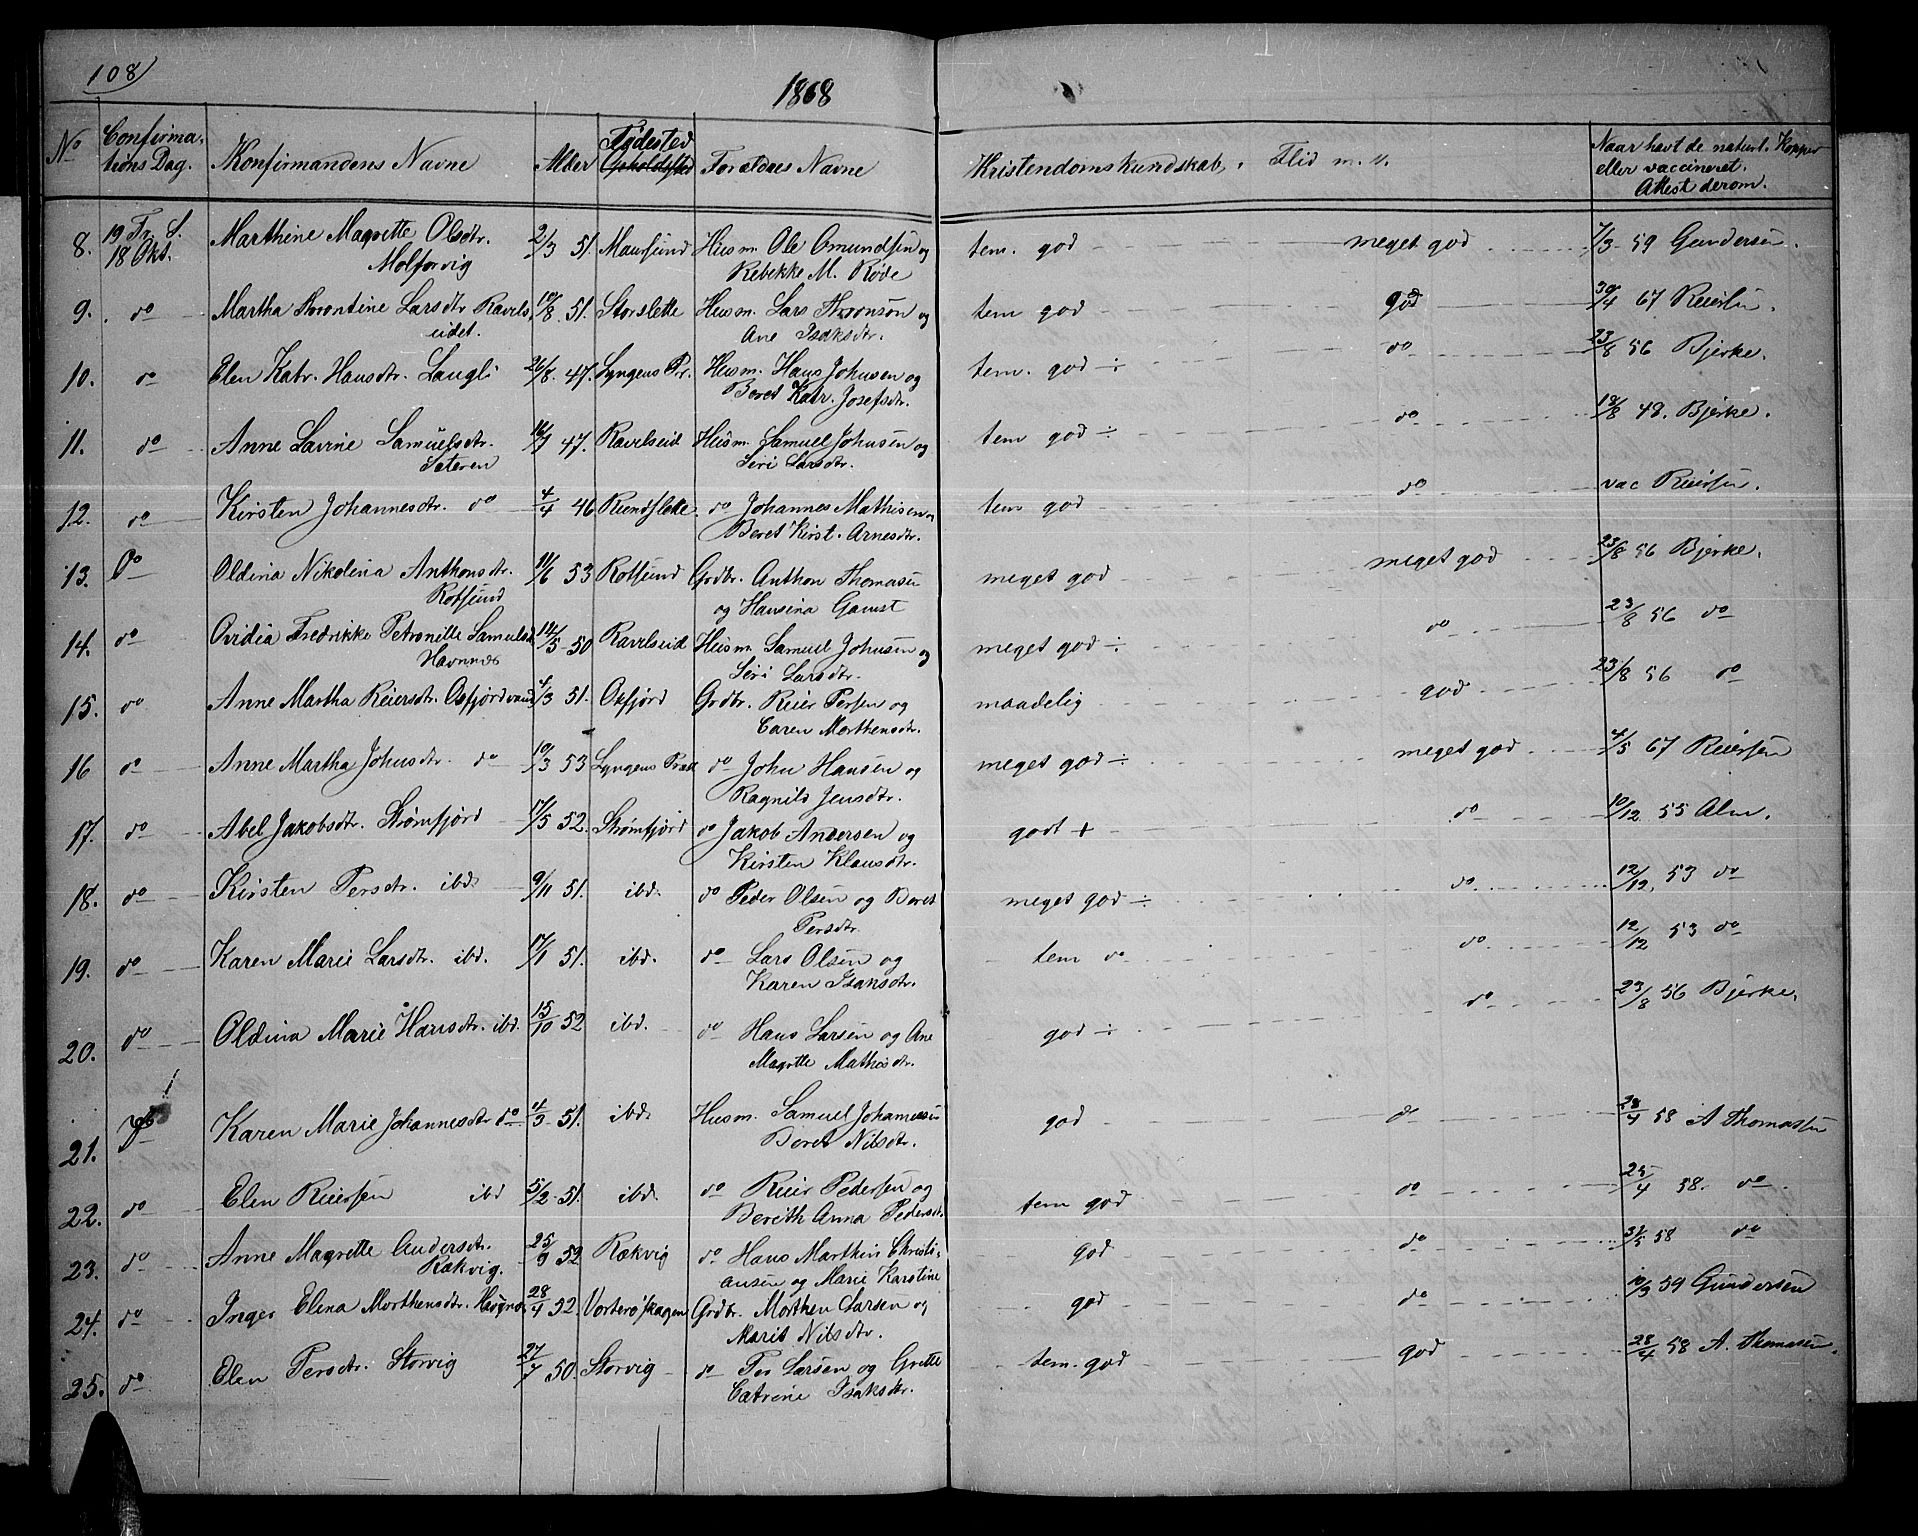 108
1868
No Confirma- Konfirmandens Navne Alder Fødested Forældres Navne Kristendomskundskab, Flid m. v. Naar havt de naturl. Kopper
tions Dag. eller vaccineret.
Attest derom.
8. 19 Tr. S. Marthine Magrette Olsdtr. 2/3 51. Mausund Husm. Ole Amundsen og tem. god meget god 7/3 59 Gundersen.
18 Okt. Molforvig Rebekke M. Røde
9. do Martha Norentine Larsdtr Ravels 10/8 51. Storslette Husm. Lars Aronsøn og tem god god 30/4 67 Reiersen.
eidet. Ane Isaksdtr.
10. do Elen Katr. Hansdtr. Langli 26/8 47. Lyngens Pr. Husm. Hans Johnsen og tem. god ÷ do 23/8 56 Bjerke.
Beret Katr. Josefsdtr.
11. do Anne Lavine Samuelsdtr. 16/1 47. Ravelseid Husm. Samuel Johnsen og tem god ÷ do 18/8 48. Bjerke.
Sæteren Siri Larsdtr.
12. do Kirsten Johannesdtr. do 4/4 46 Reindslette do Johannes Mathisen og tem god do vac Reiersen.
Beret Kirst. Arnesdtr.
13. do Oldina Nikolina Anthonsdtr. 11/6 53 Rotsund Grdbr. Anthon Thomasen meget god meget god 23/8 56 Bjerke.
Rotsund og Hansina Gamst
14. do Ovidia Fredrikke Petronille Samuelsd 14/5 50 Ravelseid Husm. Samuel Johnsen og meget god ÷ do 23/8 56 do
Havnnes Siri Larsdtr.
15. do Anne Martha Reiersdtr. Oxfjordvand 4/3 51. Oxfjord Grdbr. Reier Persen og maadelig god 23/8 56 do
Caren Morthensdtr.
16 do Anne Martha Johnsdtr. do 10/3 53 Lyngens Præst do John Hansen og meget god ÷ meget god 4/5 67 Reiersen
Ragnild Jensdtr.
17. do Abel Jakobsdtr. Strømfjord 17/5 52. Strømfjord do Jakob Andersen og godt + do 10/12 55 Alm.
Kirsten Klausdtr.
18. do Kirsten Persdtr. ibd. 9/11 51. ibd. do Peder Olsen og Beret meget god ÷ do 12/12. 53 do
Persdtr.
19. do Karen Marie Larsdtr. ibd. 17/1 51. ibd. do Lars Olsen og tem do do 12/12 53 do
Karen Isaksdtr.
20. do Oldina Marie Hansdtr. ibd. 15/10 52 ibd. do Hans Larsen og Ane god ÷ do 23/8 56 Bjerke.
Magrette Mathisdtr.
21. do Karen Marie Johannesdtr do 11/3 51. ibd. Husm. Samuel Johannesen god do 28/4 58 A Thomassen
Beret Nilsdtr.
22. do Elen Reiersen ibd 5/2 51. ibd. do Reier Pedersen og tem god do 25/4 58. do
Berith Anna Pedersdtr
23. do Anne Magrette Andersdtr. 25/9 52 Rækvig do Hans Marthin Christi- god do 31/5 58 do
Rækvig. ansen og Marie Karstine
24. do Inger Elena Morthensdtr. Høgnes 28/4 52. Vorterøskagen Grdbr. Morthen Larsen og god do 10/3 59 Gundersen
Marit Nilsdtr.
25. do Elen Persdtr. Storvig 27/7 50. Storvig do Per Larsen og Grette tem. god god 28/4 58 A. Thomassen.
Catrine Isaksdtr.